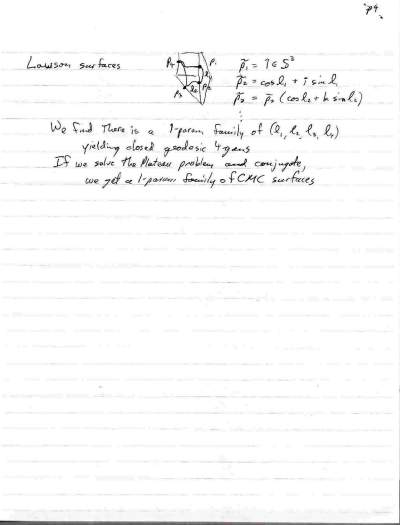 p4
Lawson surfaces
P4 P1
l1
l2 P2
P3
p̃1 = 1 ∈ S³
p̃2 = cos l1 + i sin l1
p̃3 = p̃2 (cos l2 + k sin l2)
⋮
We find there is a 1-param family of (l1, l2, l3, l4)
yielding closed geodesic 4-gons
If we solve the Plateau problem and conjugate,
we get a 1-param family of CMC surfaces